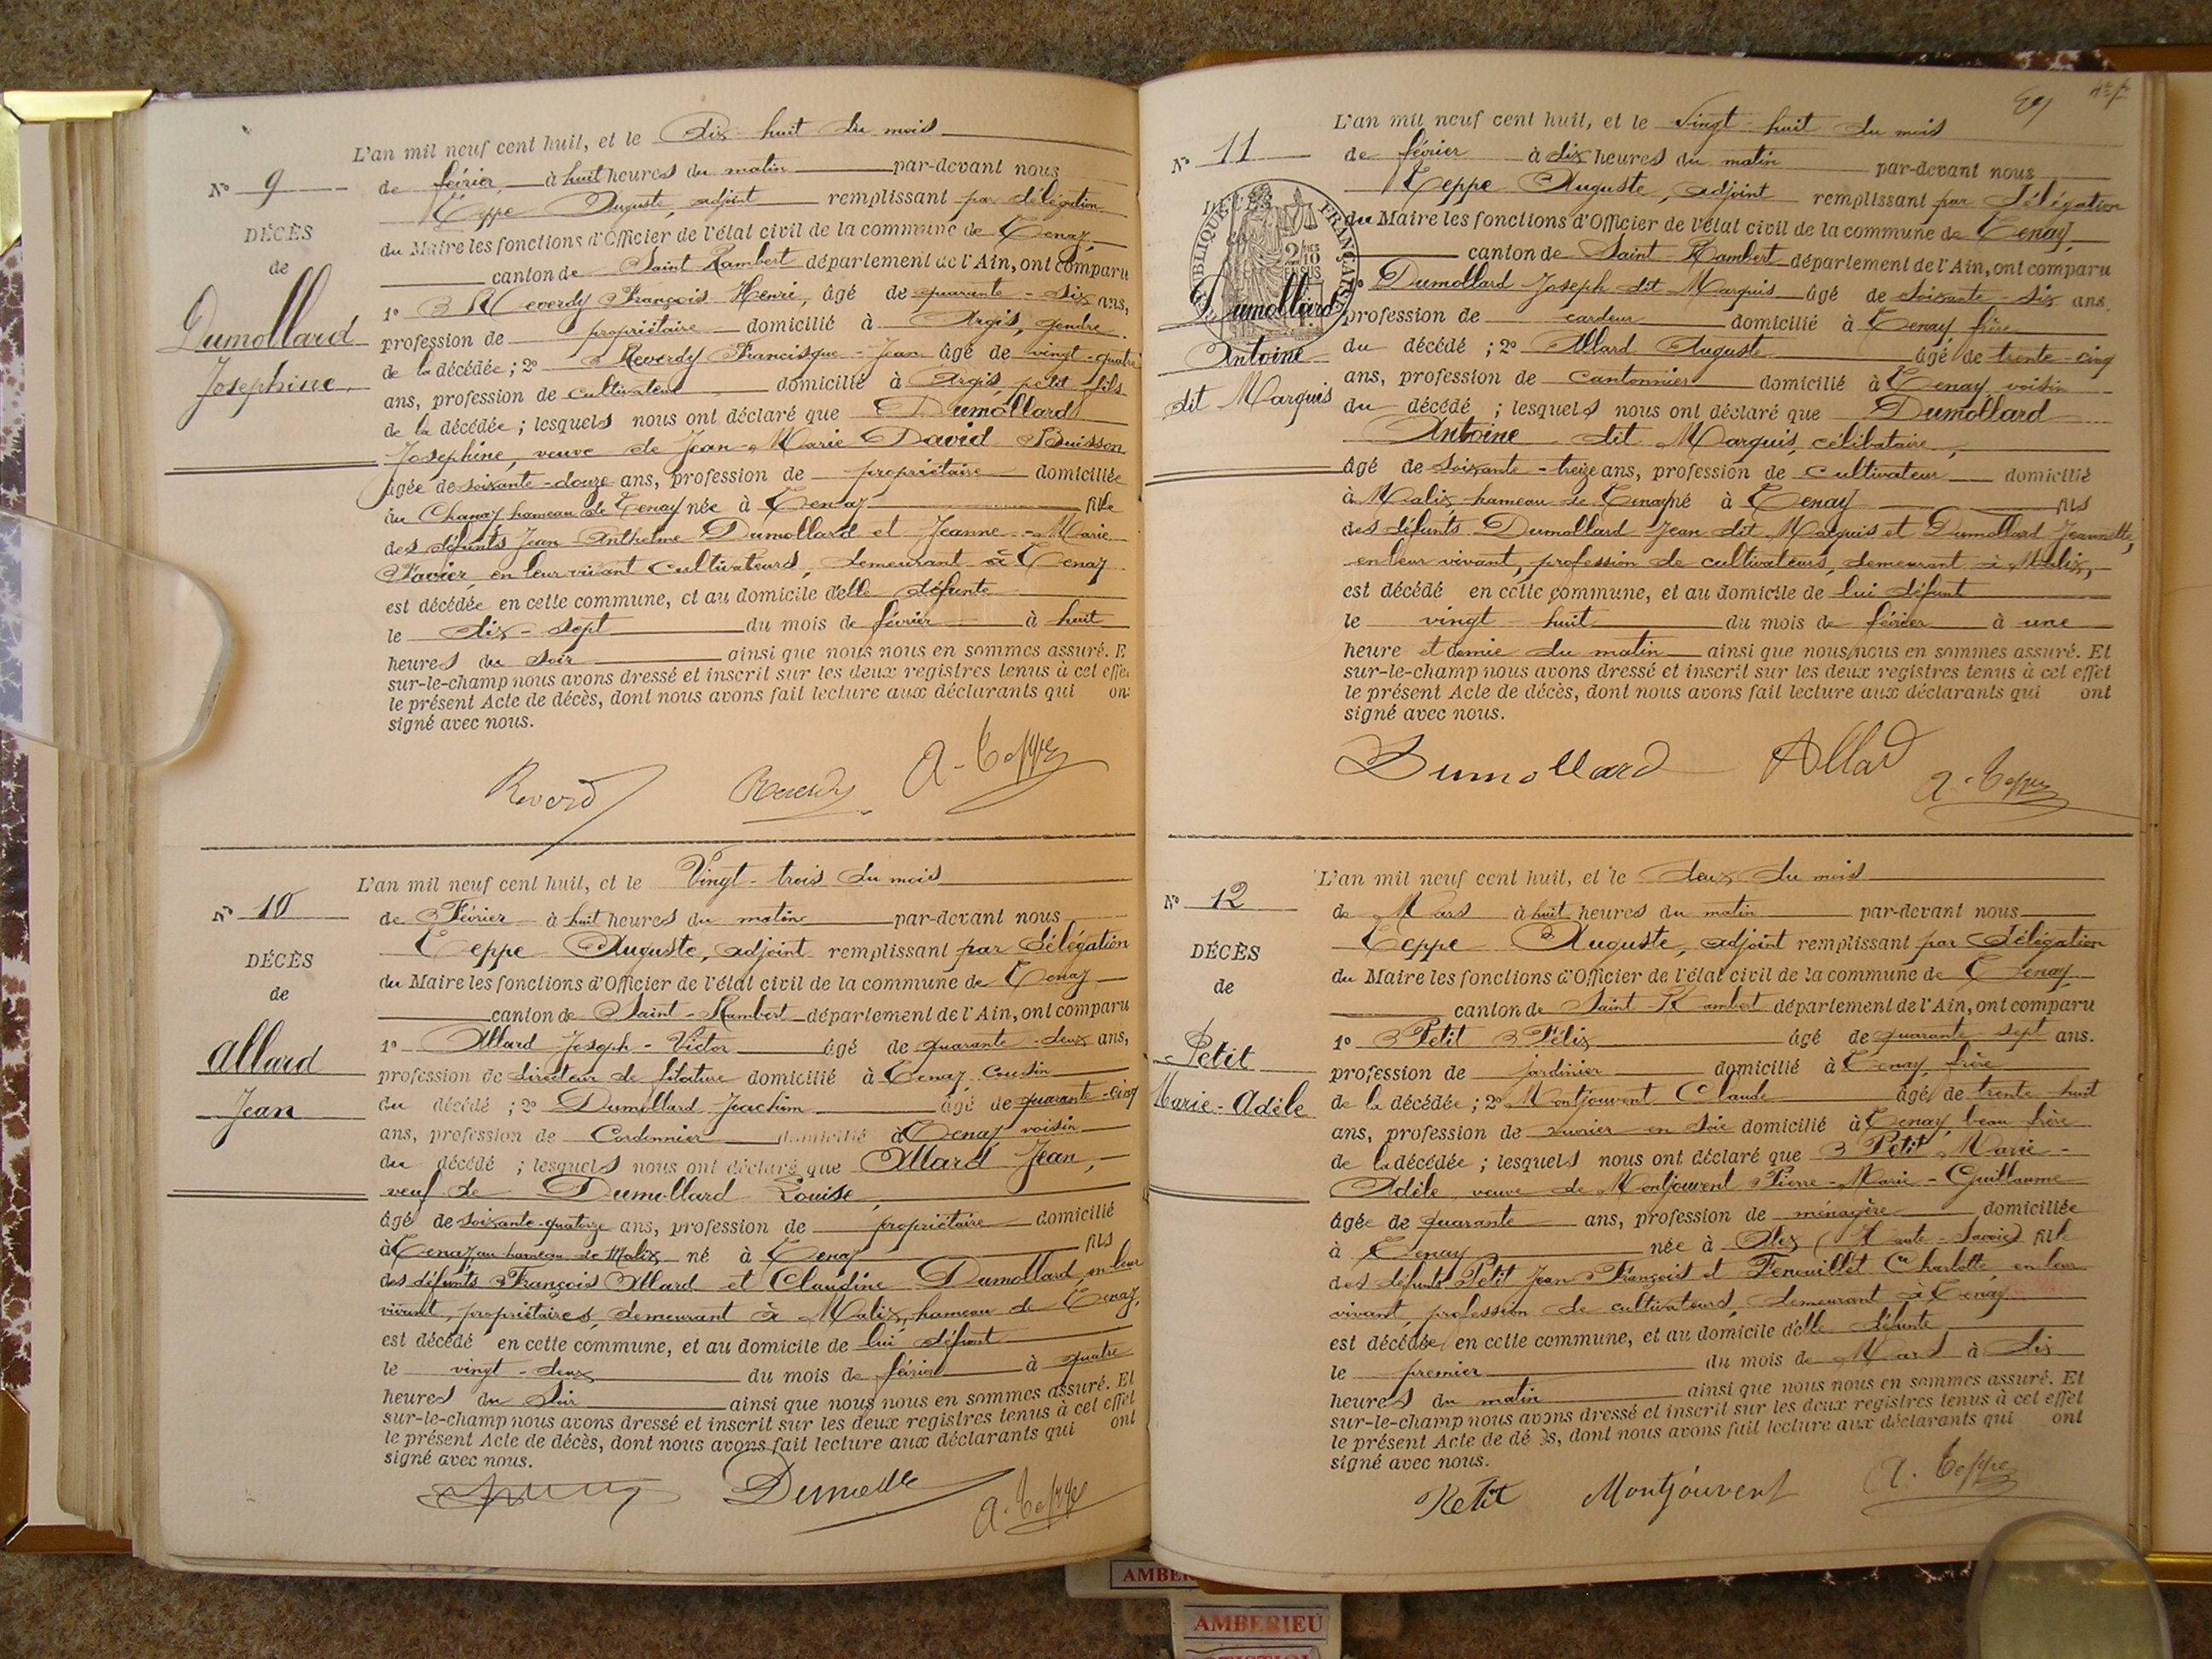 N° 9
DÉCÈS
de
Dumollard
Josephine
L'an mil neuf cent huit, et le Dix-huit du mois
de février à huit heures du matin par-devant nous
Teppe Auguste, adjoint remplissant par délégation
du Maire les fonctions d'Officier de l'état civil de la commune de Tenay,
canton de Saint-Rambert département de l'Ain, ont comparu
1° Reverdy François Henri, âgé de quarante-six ans,
profession de propriétaire domicilié à Argis, gendre
de la décédée ; 2° Reverdy Francisque-Jean âgé de vingt-quatre
ans, profession de cultivateur domicilié à Argis, petit fils
de la décédée ; lesquels nous ont déclaré que Dumollard
Josephine, veuve de Jean-Marie David-Buisson
âgée de soixante-douze ans, profession de propriétaire domiciliée
au Chanay hameau de Tenay née à Tenay fille
des défunts Jean Anthelme Dumollard et Jeanne-Marie
Favier, en leur vivant cultivateurs, demeurant à Tenay
est décédée en cette commune, et au domicile d'elle défunte
le dix-sept du mois de février à huit
heures du soir ainsi que nous nous en sommes assuré. E
sur-le-champ nous avons dressé et inscrit sur les deux registres tenus à cet effet
le présent Acte de décès, dont nous avons fait lecture aux déclarants qui ont
signé avec nous.
Reverd A. Teppe
N° 10
DÉCÈS
de
Allard
Jean
L'an mil neuf cent huit, et le Vingt-trois du mois
de Février à huit heures du matin par-devant nous
Teppe Auguste, adjoint remplissant par délégation
du Maire les fonctions d'Officier de l'état civil de la commune de Tenay
canton de Saint-Rambert département de l'Ain, ont comparu
1° Allard Joseph-Victor âgé de quarante-deux ans,
profession de directeur de filature domicilié à Tenay cousin
du décédé ; 2° Dumollard Joachim âgé de quarante-cinq
ans, profession de Cordonnier domicilié à Tenay voisin
du décédé ; lesquels nous ont déclaré que Allard Jean,
veuf de Dumollard Louise,
âgé de soixante-quatorze ans, profession de propriétaire domicilié
à Tenay, au hameau de Malix né à Tenay fils
des défunts François Allard et Claudine Dumollard, en leur
vivant, propriétaires, demeurant à Malix, hameau de Tenay,
est décédé en cette commune, et au domicile de lui défunt
le vingt-deux du mois de février à quatre
heures du soir ainsi que nous nous en sommes assuré. Et
sur-le-champ nous avons dressé et inscrit sur les deux registres tenus à cet effet
le présent Acte de décès, dont nous avons fait lecture aux déclarants qui ont
signé avec nous.
A. Teppe
N° 11
RÉPUBLIQUE FRANÇAISE
Dumollard
Antoine
dit Marquis
L'an mil neuf cent huit, et le Vingt-huit du mois
de février à dix heures du matin par-devant nous
Teppe Auguste, adjoint remplissant par Délégation
du Maire les fonctions d'Officier de l'état civil de la commune de Tenay,
canton de Saint-Rambert département de l'Ain, ont comparu
1° Dumollard Joseph dit Marquis âgé de soixante-six ans
profession de cardeur domicilié à Tenay, frère
du décédé ; 2° Allard Auguste âgé de trente-cinq
ans, profession de cantonnier domicilié à Tenay, voisin
du décédé ; lesquels nous ont déclaré que Dumollard
Antoine dit Marquis, célibataire,
âgé de soixante-treize ans, profession de cultivateur domicilié
à Malix hameau de Tenay né à Tenay fils
des défunts Dumollard Jean dit Marquis et Dumollard Jeannette,
en leur vivant, profession de cultivateurs, demeurant à Malix,
est décédé en cette commune, et au domicile de lui défunt
le vingt-huit du mois de février à une
heure et demie du matin ainsi que nous nous en sommes assuré. Et
sur-le-champ nous avons dressé et inscrit sur les deux registres tenus à cet effet
le présent Acte de décès, dont nous avons fait lecture aux déclarants qui ont
signé avec nous.
Dumollard Allard A. Teppe
N° 12
DÉCÈS
de
Petit
Marie-Adèle
L'an mil neuf cent huit, et le deux du mois
de Mars à huit heures du matin par-devant nous
Teppe Auguste, adjoint remplissant par Délégation
du Maire les fonctions d'Officier de l'état civil de la commune de Tenay
canton de Saint-Rambert département de l'Ain, ont comparu
1° Petit Félix âgé de quarante-sept ans.
profession de jardinier domicilié à Tenay, frère
de la décédée ; 2° Montjouvent Claude âgé de trente huit
ans, profession de ouvrier en soie domicilié à Tenay, beau frère
de la décédée ; lesquels nous ont déclaré que Petit Marie-
Adèle, veuve de Montjouvent Pierre-Marie-Guillaume
âgée de quarante ans, profession de ménagère domiciliée
à Tenay née à Alex (Haute-Savoie) fille
des défunts Petit Jean François et Fenouillet Charlotte, en leur
vivant, profession de cultivateurs, demeurant à Tenay
est décédée en cette commune, et au domicile d'elle défunte
le premier du mois de Mars à dix
heures du matin ainsi que nous nous en sommes assuré. Et
sur-le-champ nous avons dressé et inscrit sur les deux registres tenus à cet effet
le présent Acte de décès, dont nous avons fait lecture aux déclarants qui ont
signé avec nous.
Petit Montjouvent A. Teppe
AMBERIEU